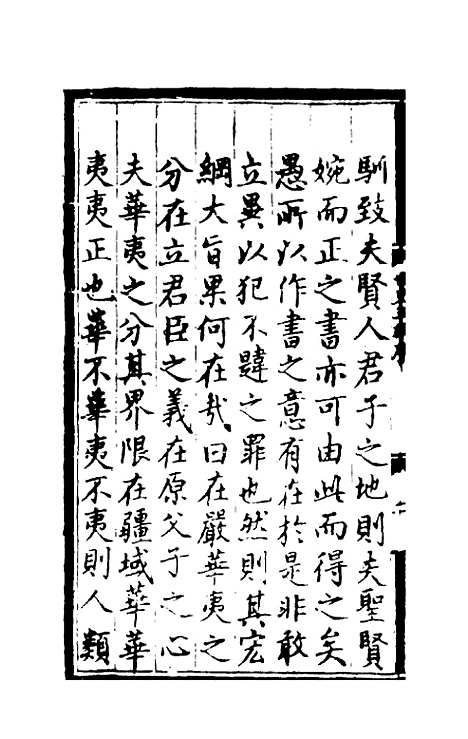 馴致夫賢人君子之地則夫聖賢
婉而正之書亦可由此而得之矣
愚所以作書之意有在於是非敢
立異以犯不韙之罪也然則其宏
綱大旨果何在哉曰在嚴華夷之
分在立君臣之義在原父子之心
夫華夷之分其界限在疆域華華
夷夷正也華不華夷不夷則人類